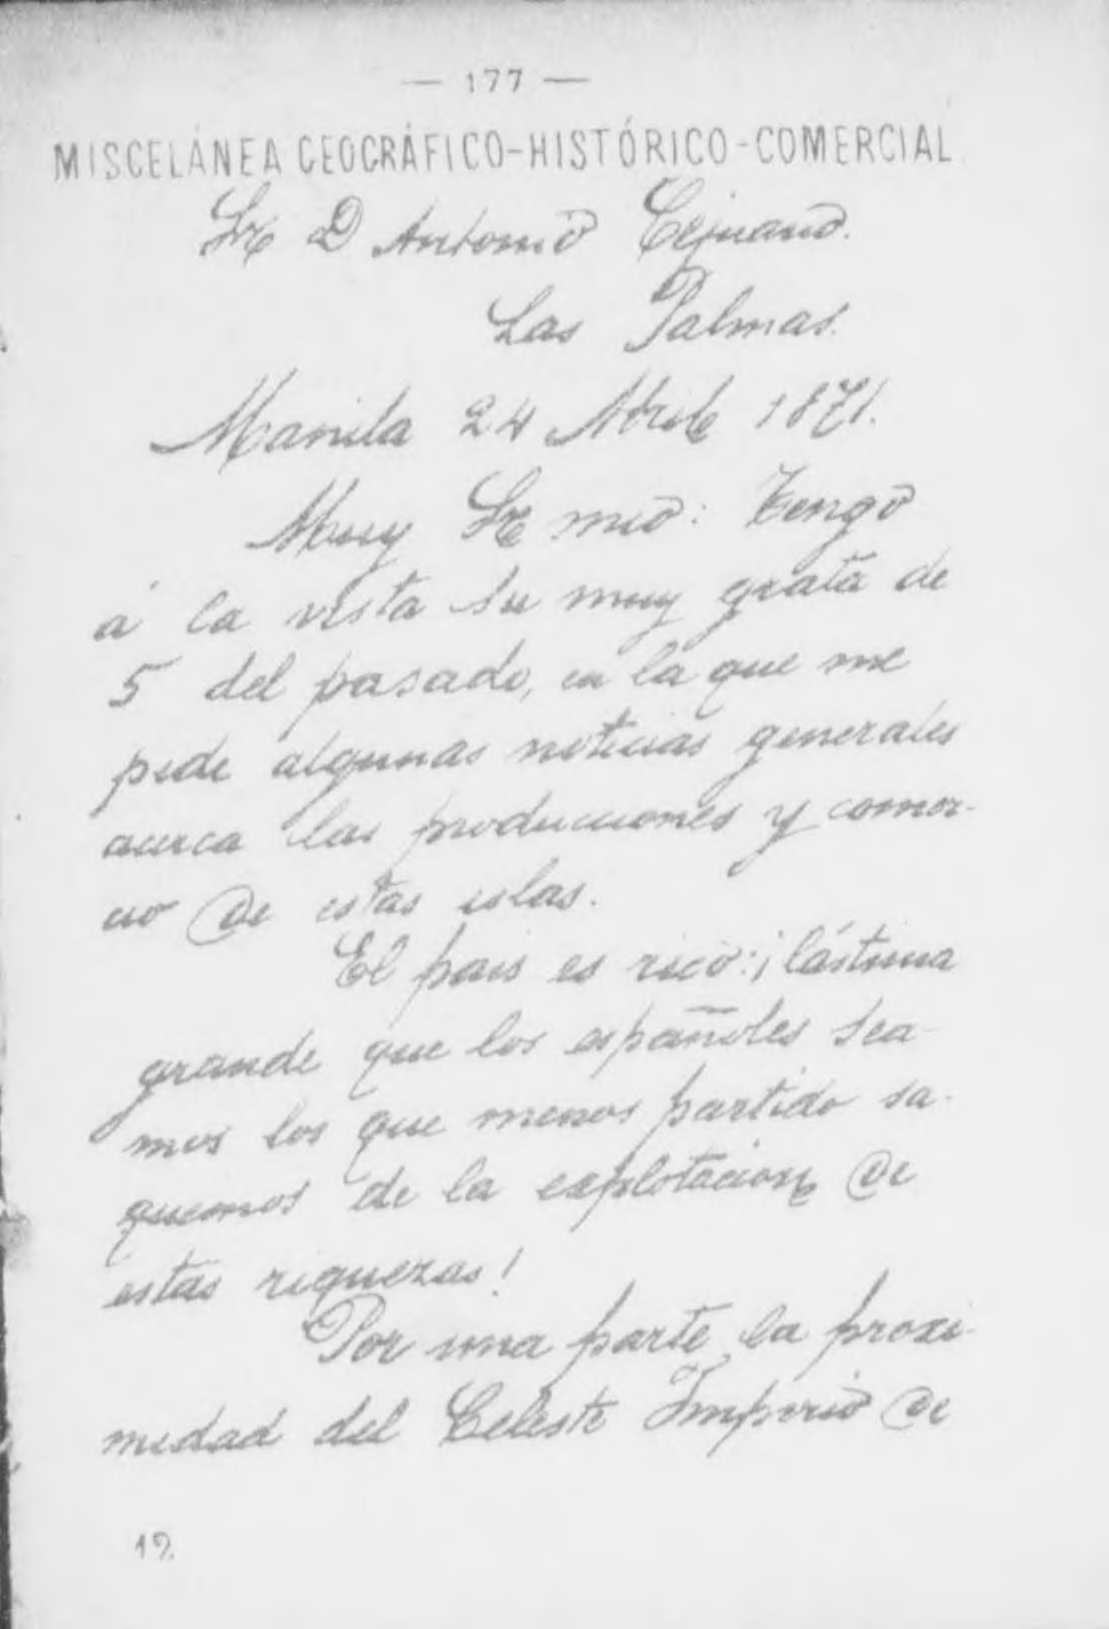 — 177 —
MISCELÁNEA GEOGRÁFICO-HISTÓRICO-COMERCIAL
Sr D Antonio
Las Palmas.
Manila 24 Abril 1871.
Muy Sr mio: Tengo
á la vista su muy grata de
5 del pasado, en la que me
pide algunas noticias generales
acerca las producciones y comer-
cio de estas islas.
El pais es rico: ¡lástima
grande que los españoles sea-
mos los que menos partido sa-
quemos de la explotacion de
estas riquezas!
Por una parte la proxi-
midad del Celeste Imperio de
12